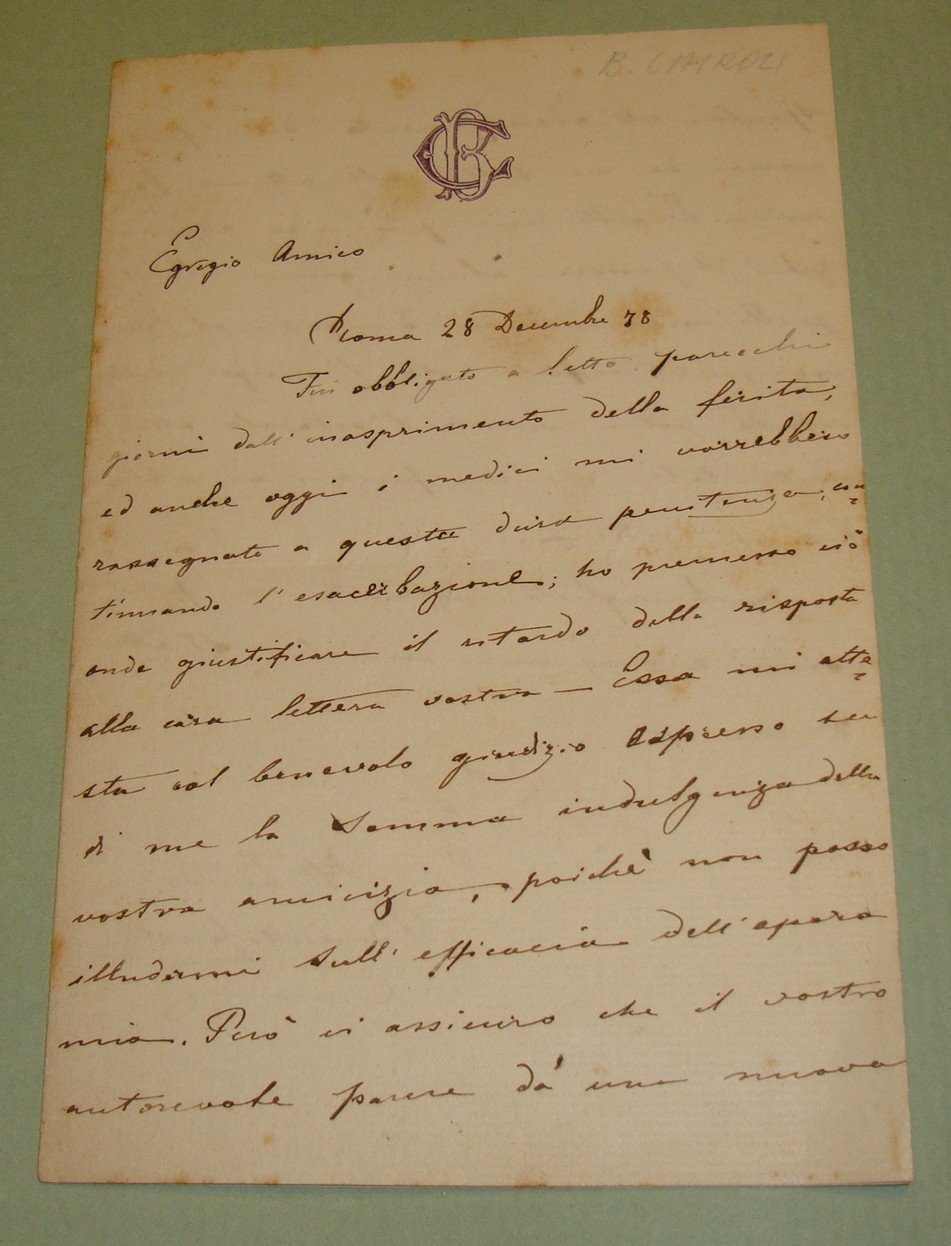 B. CAIROLI
BC
Egregio Amico
Roma 28 Decembre 78
Fui obbligato a letto parecchi
giorni dall'inasprimento della ferita,
ed anche oggi i medici mi vorrebbero
rassegnato a questa dura penitenza, con=
tinuando l'esacerbazione; ho premesso ciò
onde giustificare il ritardo della risposta
alla cara lettera vostra – Essa mi atte=
sta col benevolo giudizio espresso su
di me la somma indulgenza della
vostra amicizia, poichè non posso
illudermi sull'efficacia dell'opera
mia. Però vi assicuro che il vostro
autorevole parere dà una nuova